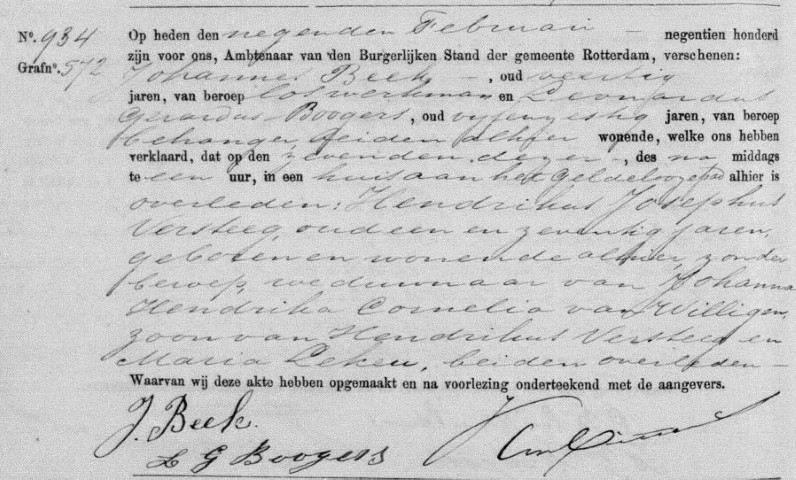 Nº. 934
Grafnº. 572
Op heden den negenden Februari — negentien honderd
zijn voor ons, Ambtenaar van den Burgerlijken Stand der gemeente Rotterdam, verschenen:
Johannes Beek —, oud veertig
jaren, van beroep loswerkman en Leonardus
Gerardus Boogers, oud vijfenzestig jaren, van beroep
behanger, beiden alhier wonende, welke ons hebben
verklaard, dat op den zevenden dezer —, des na middags
te een uur, in een huis aan het Geldeloozepad alhier is
overleden: Hendrikus Josephus
Versteeg, oud een en zeventig jaren,
geboren en wonende alhier, zonder
beroep, weduwnaar van Johanna
Hendrika Cornelia van Willigen,
zoon van Hendrikus Versteeg en
Maria Leken, beiden overleden —
Waarvan wij deze akte hebben opgemaakt en na voorlezing onderteekend met de aangevers.
J. Beek.
L G Boogers